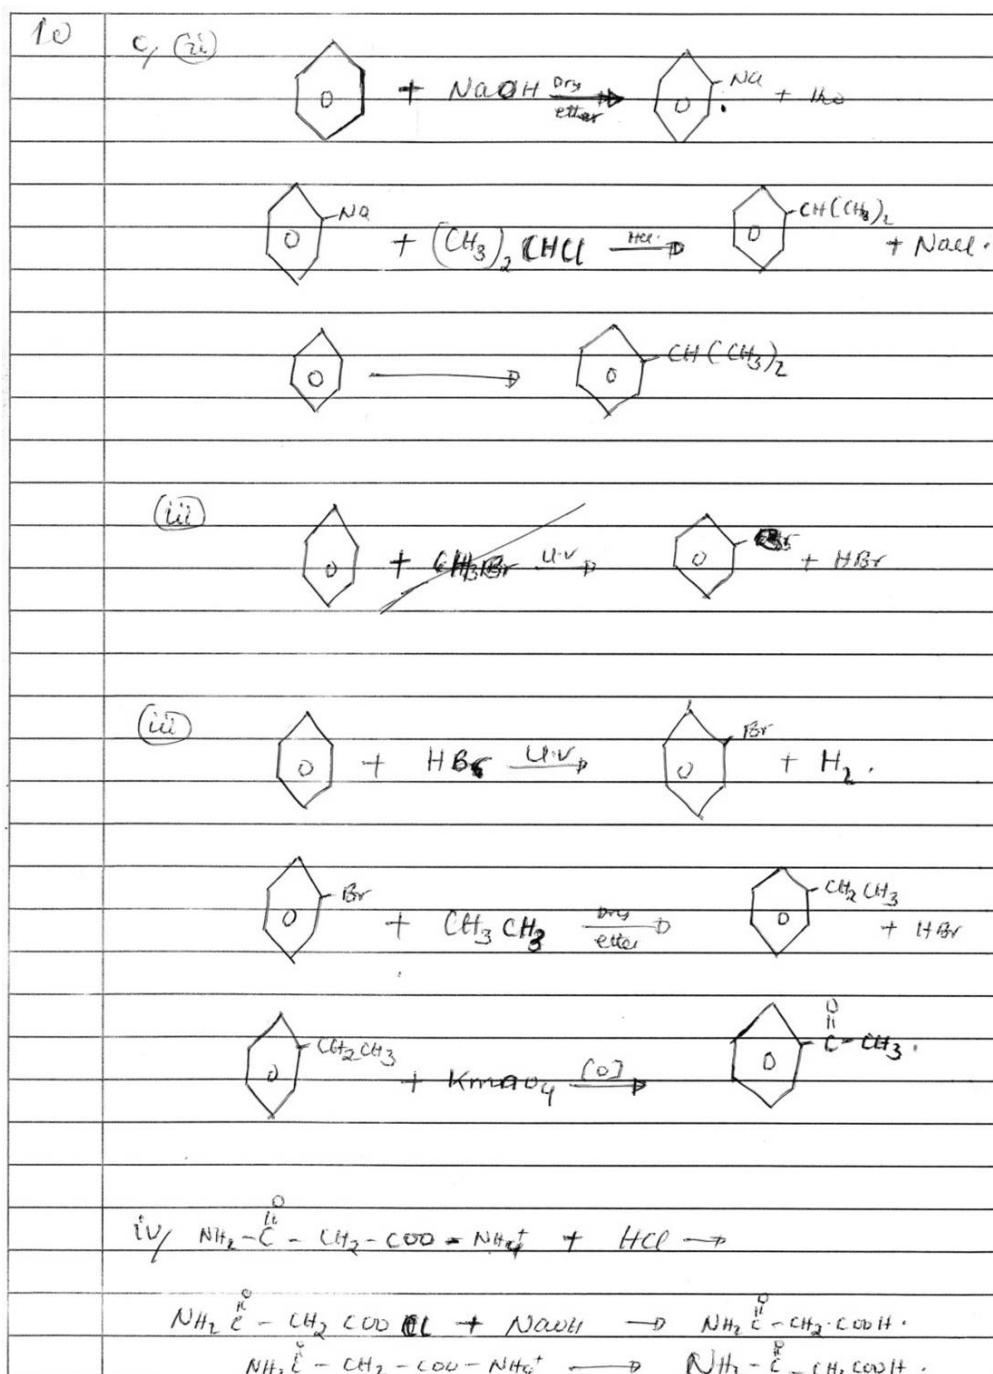 10
c, (ii)
+ NaOH Dry ether → Na + H2O
Na + (CH3)2 CHCl HCl. → CH(CH3)2 + NaCl.
→ CH(CH3)2
(iii)
+ CH3Br U.V → + HBr
(iii)
+ HBr U.V → Br + H2.
Br + CH3 CH3 Dry ether → CH2 CH3 + HBr
CH2CH3 + KmnO4 [O] → O
C - CH3.
iv/ NH2 - C - CH2 - COO - NH4+ + HCl →
O
NH2 C - CH2 COO Cl + NaOH → NH2 C - CH2. COOH.
O O
NH2 C - CH2 - COO - NH4+ → NH2 - C - CH2 COOH.
O O